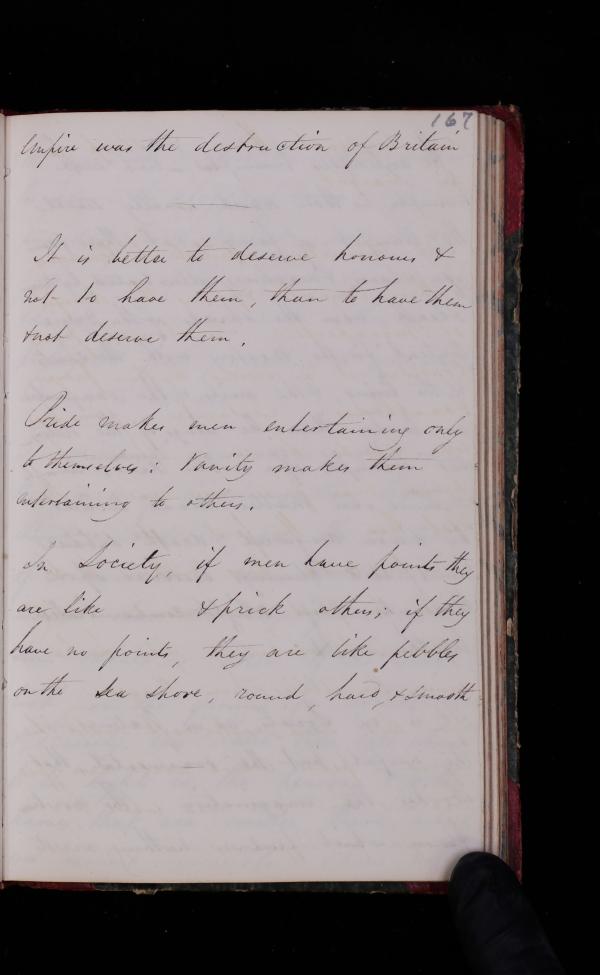 167
Empire was the destruction of Britain
It is better to deserve honours &
not to have them, than to have them
& not deserve them.
Pride makes men entertaining only
to themselves: Vanity makes them
entertaining to others.
In Society, if men have points they
are like & prick others; if they
have no points, they are like pebbles
on the Sea shore, round, hard, & smooth